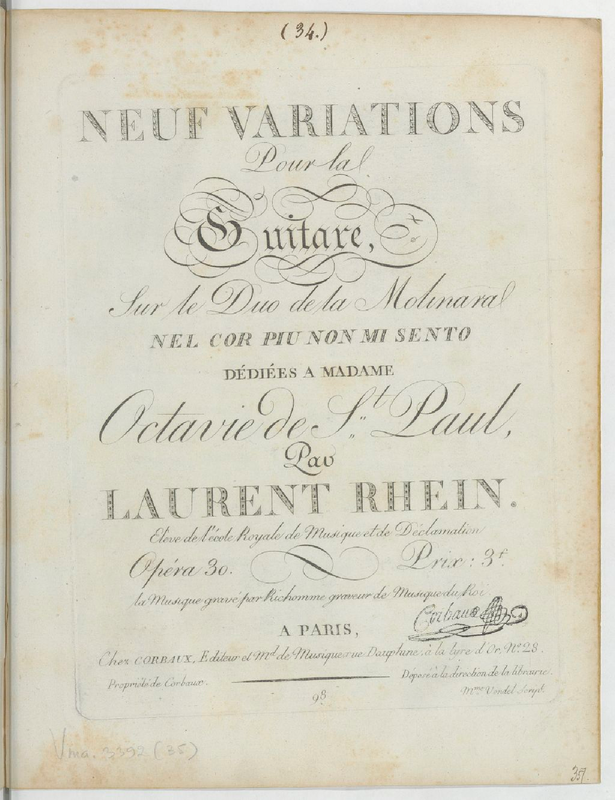 (34.)
NEUF VARIATIONS
Pour la
Guitare,
Sur le Duo de la Molinara
NEL COR PIU NON MI SENTO
DÉDIÉES A MADAME
Octavie de St. Paul,
Par
LAURENT RHEIN.
Elève de l'école Royale de Musique et de Déclamation
Opéra 30. Prix: 3f.
la Musique gravé par Richomme graveur de Musique du Roi
Corbaux
A PARIS,
Chez CORBAUX, Editeur et Md. de Musique rue Dauphine, à la lyre d'Or, No. 28.
Propriété de Corbaux. Déposé à la direction de la librairie.
98 Mme Vendel Script
Vma. 3392 (35)